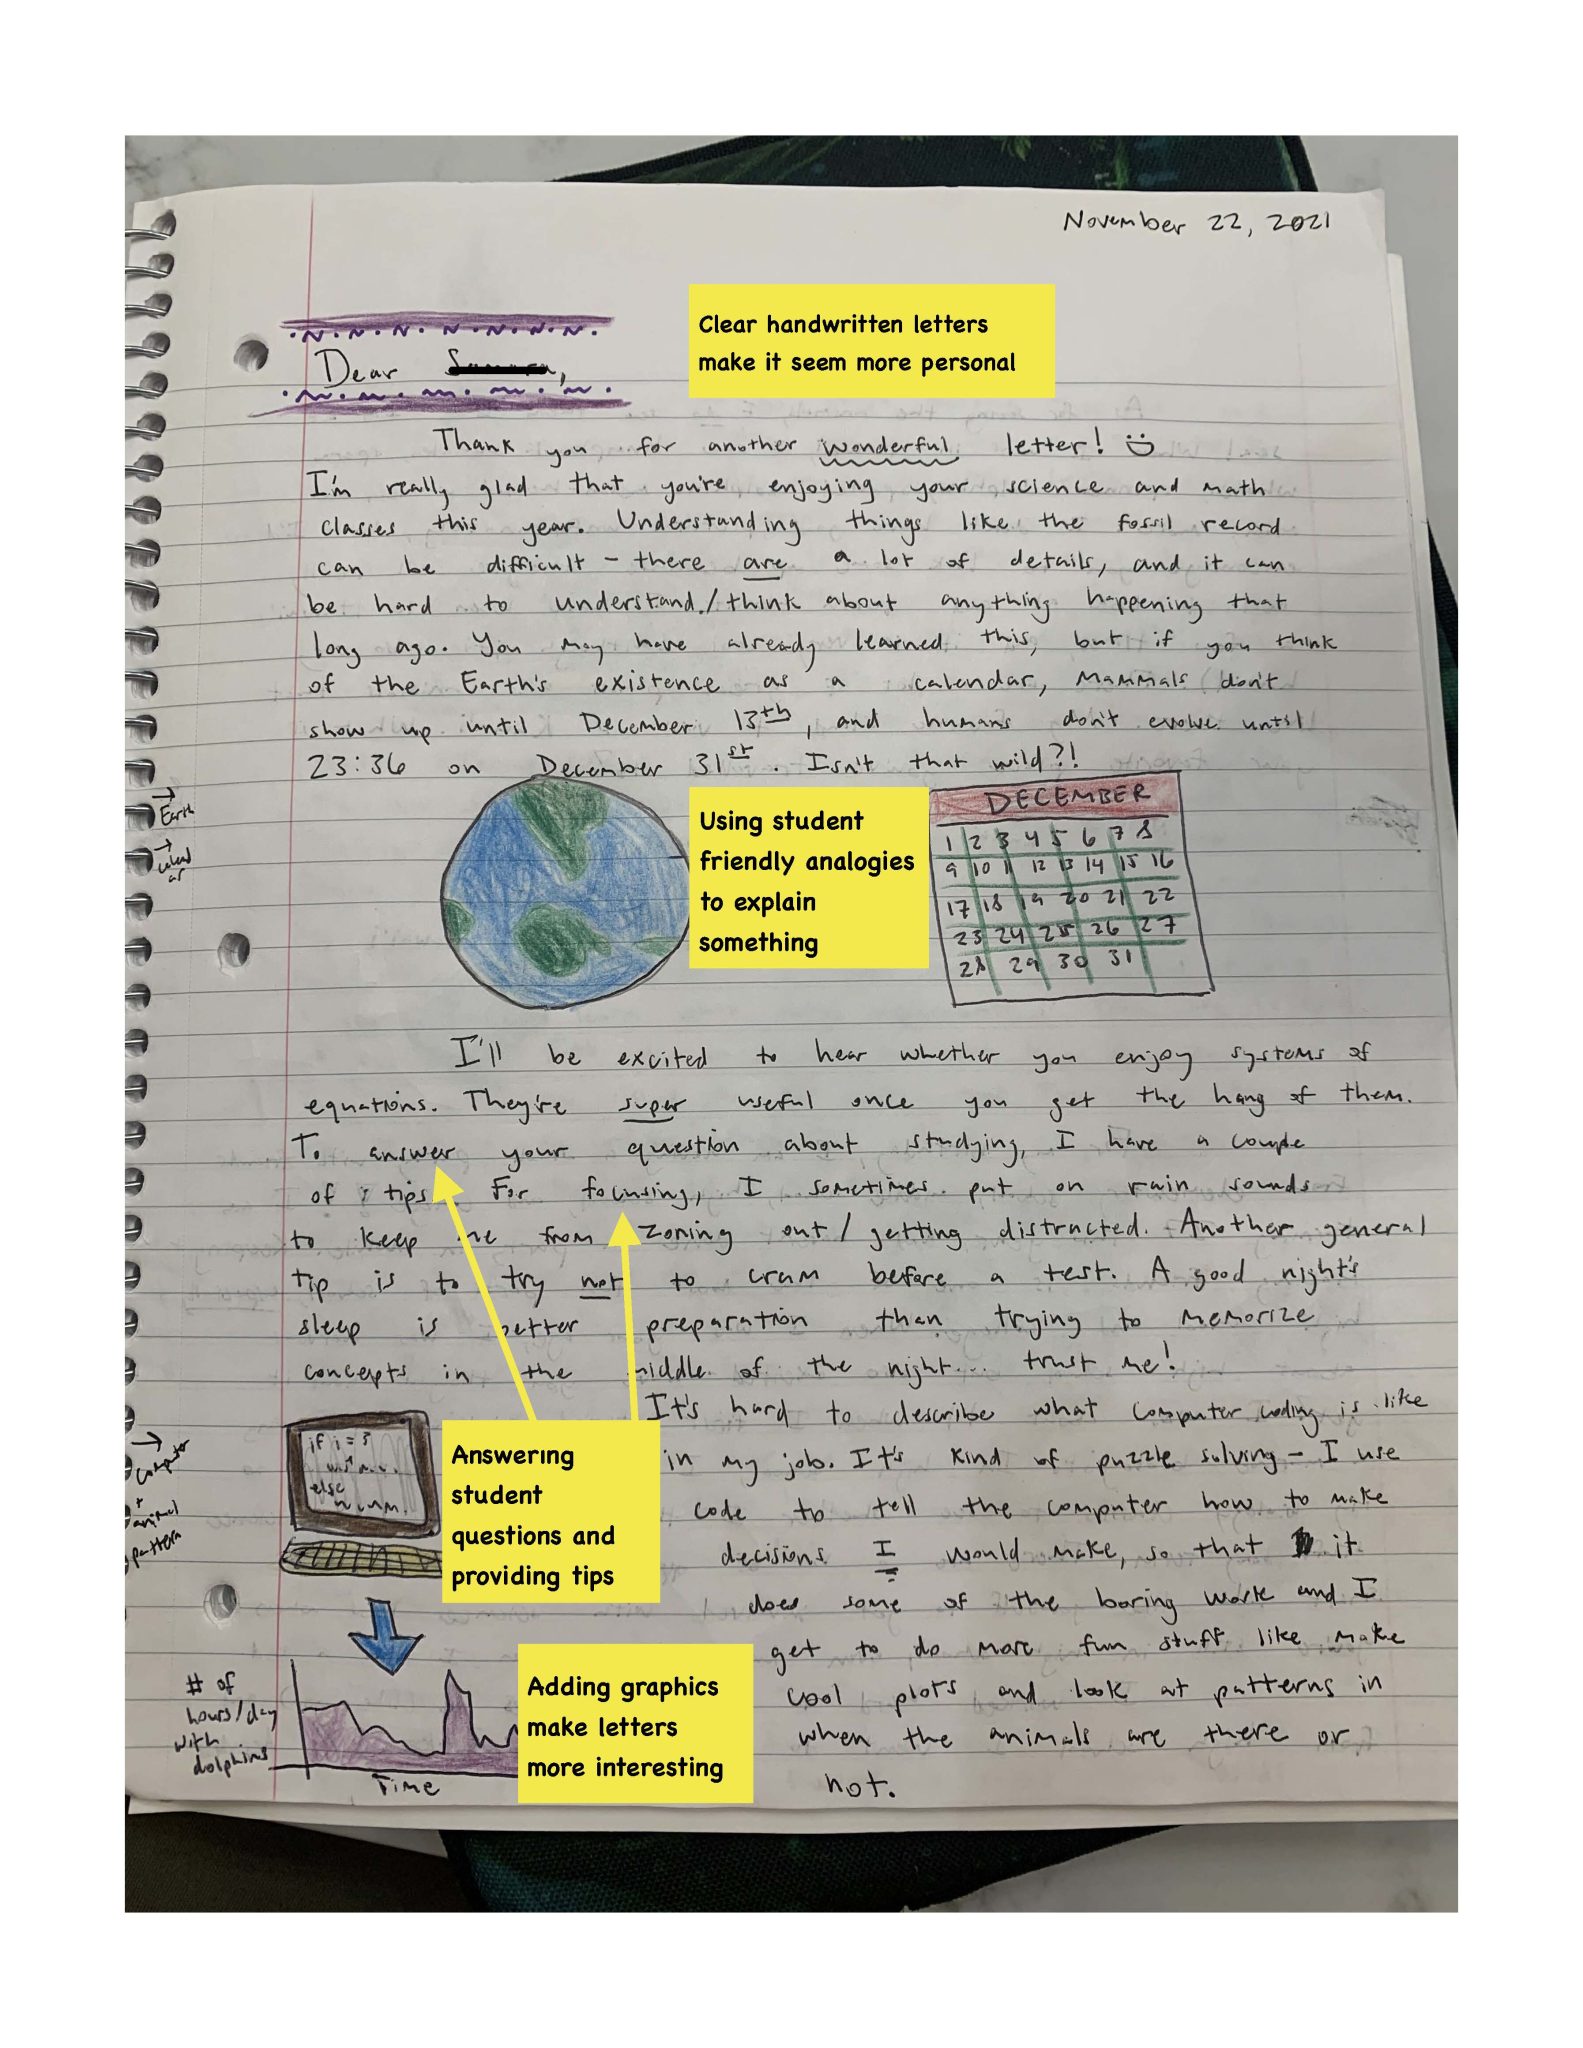 November 22, 2021
Clear handwritten letters
make it seem more personal
Dear
Thank you for another wonderful letter!
I'm really glad that you're enjoying your science and math
classes this year. Understanding things like the fossil record
can be difficult - there are a lot of details, and it can
be hard to understand/think about anything happening that
long ago. You may have already learned this, but if you think
of the Earth's existence as a calendar, mammals don't
show up until December 13th, and humans don't evolve until
23:36 on December 31st. Isn't that wild?!
→ Earth
→ calendar
Using student
friendly analogies
to explain
something
DECEMBER
1 2 3 4 5 6 7 8
9 10 11 12 13 14 15 16
17 18 19 20 21 22
23 24 25 26 27
28 29 30 31
I'll be excited to hear whether you enjoy systems of
equations. They're super useful once you get the hang of them.
To answer your question about studying, I have a couple
of tips. For focusing, I sometimes put on rain sounds
to keep me from zoning out/getting distracted. Another general
tip is to try not to cram before a test. A good night's
sleep is better preparation than trying to memorize
concepts in the middle of the night... trust me!
It's hard to describe what computer coding is like
in my job. It's kind of puzzle solving - I use
code to tell the computer how to make
decisions I would make, so that it
does some of the boring work and I
get to do more fun stuff like make
cool plots and look at patterns in
when the animals are there or
not.
→ computer
+ animal
pattern
if i = 3
else
Answering
student
questions and
providing tips
Adding graphics
make letters
more interesting
# of
hours/day
with
dolphins
Time